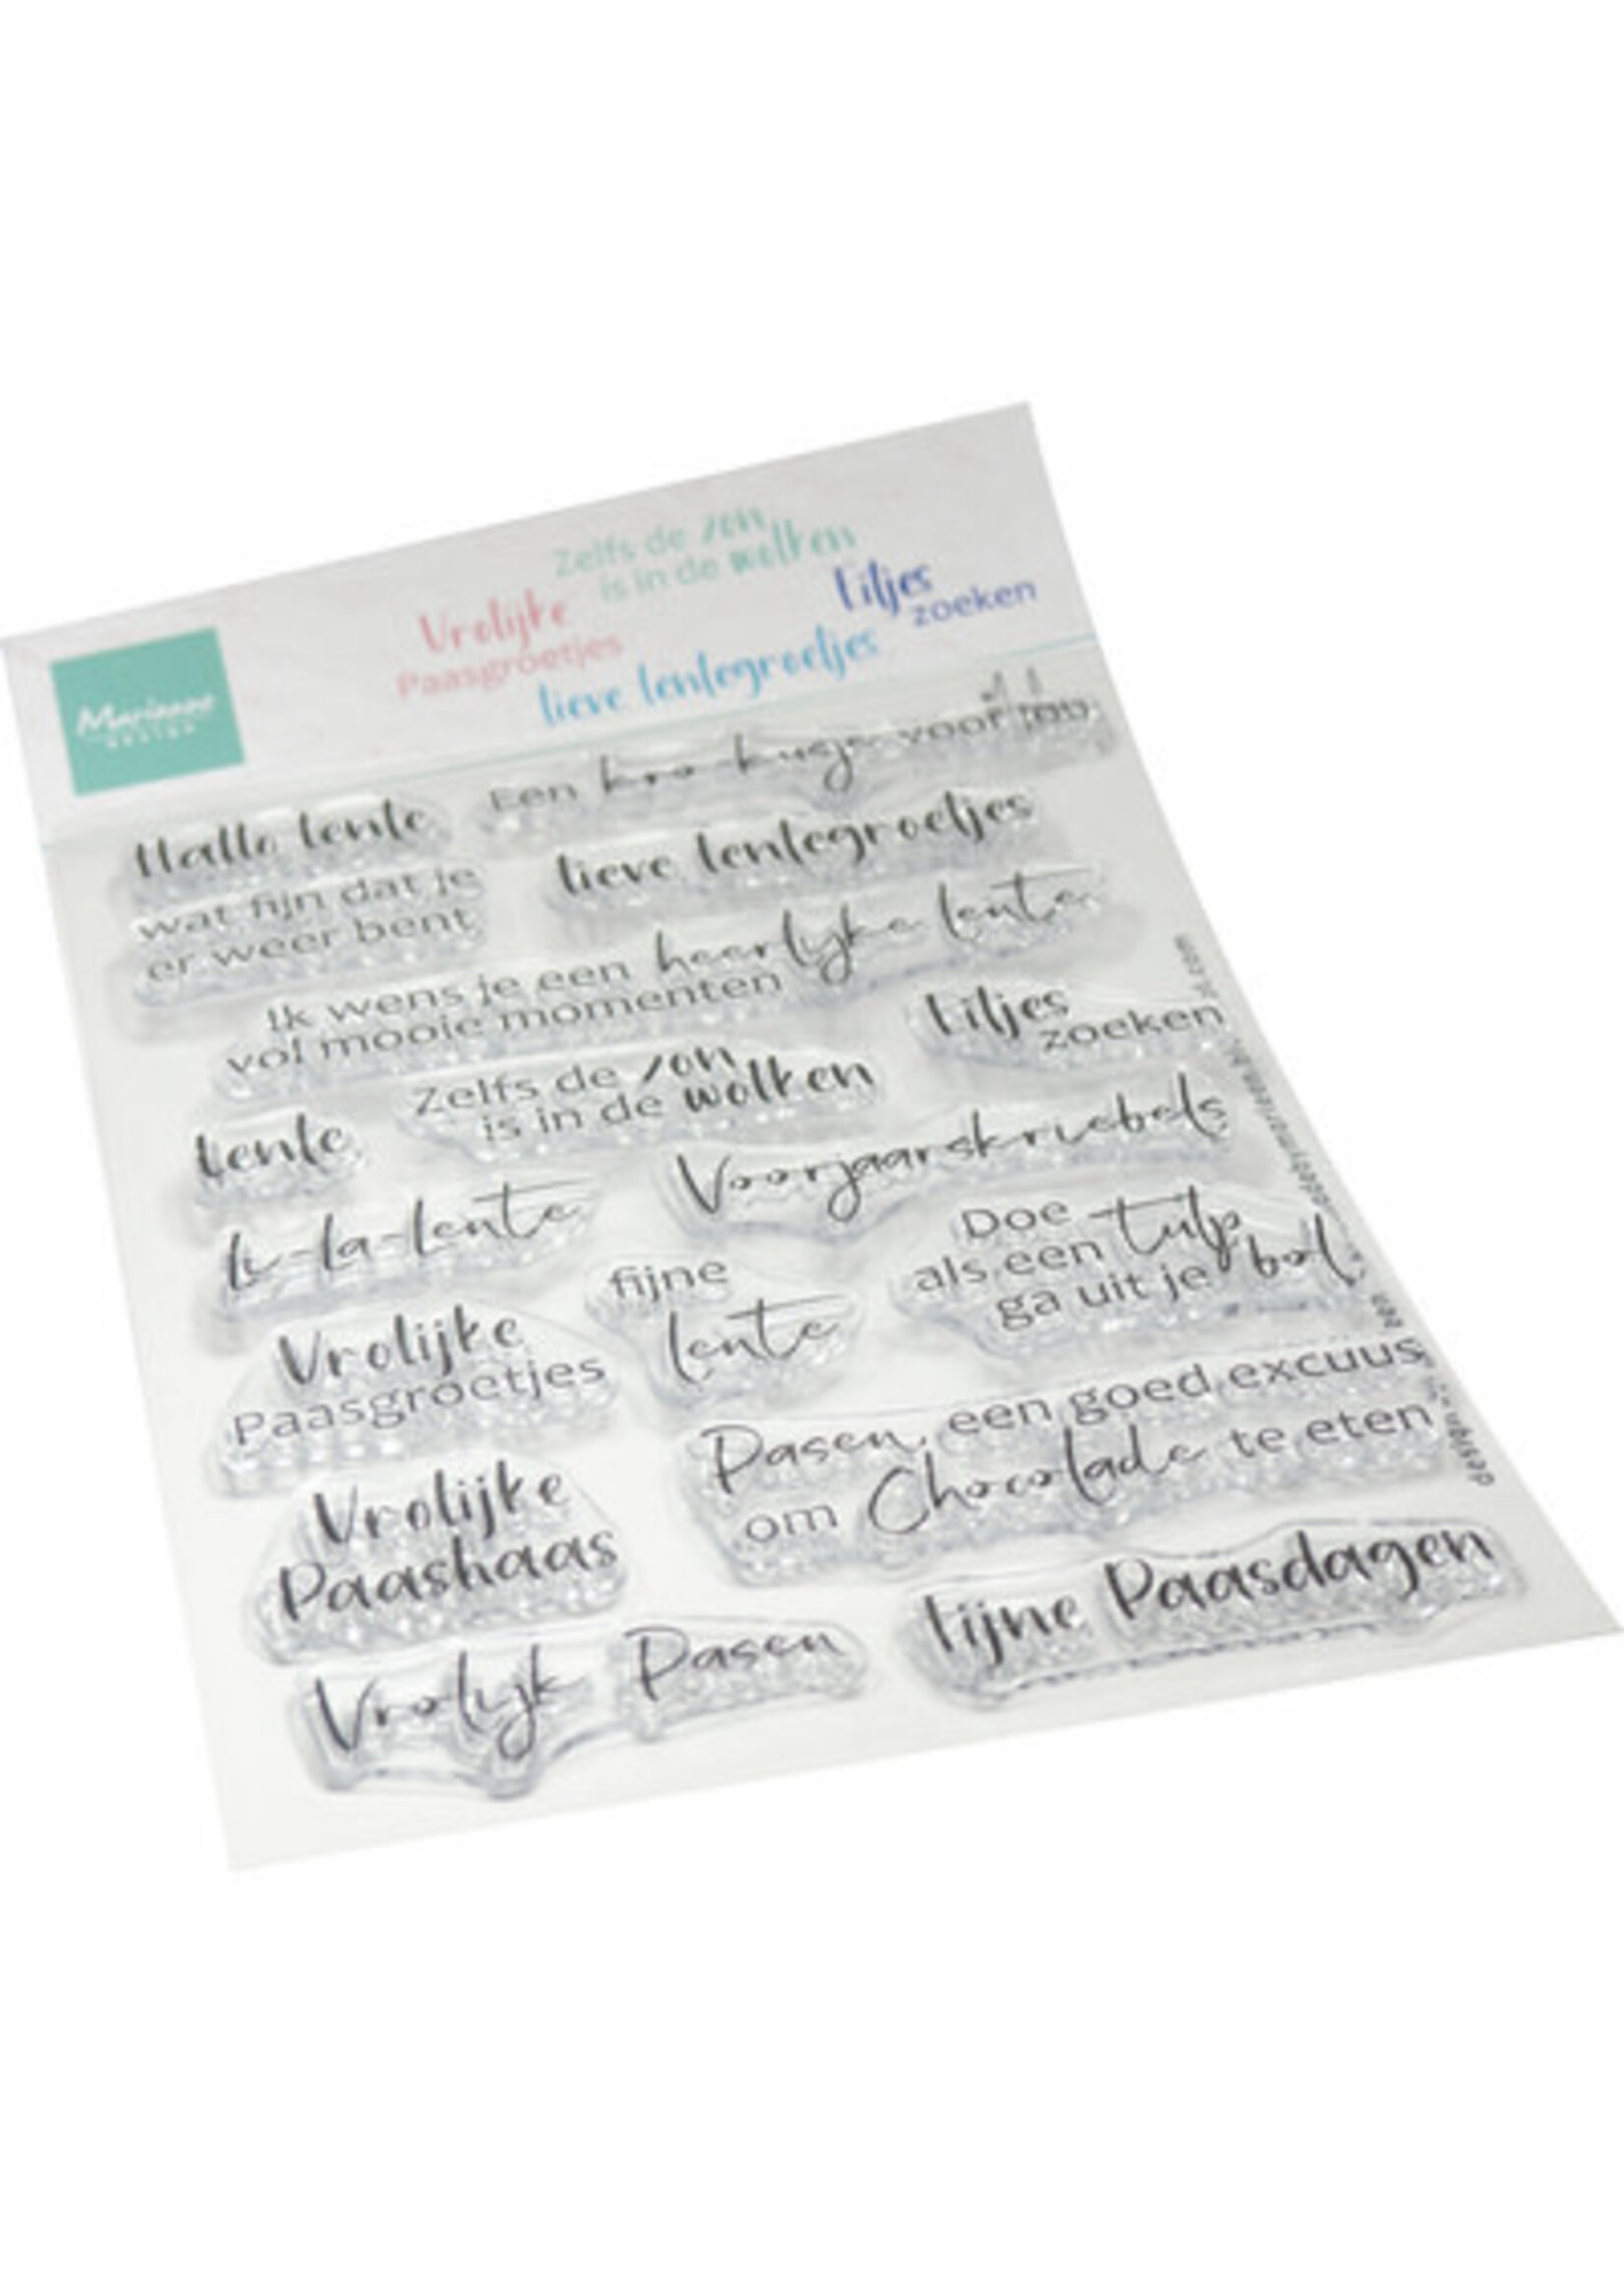 Zelfs de zon
is in de wolken
Vrolijke
Paasgroetjes
Eitjes
zoeken
lieve lentegroetjes
Marianne
DESIGN
Een kro-kusje voor jou
Hallo lente
wat fijn dat je
er weer bent
lieve lentegroetjes
Ik wens je een heerlijke lente
vol mooie momenten
Eitjes
zoeken
Zelfs de zon
is in de wolken
Lente
Voorjaarskriebels
Li-la-lente
Doe
als een tulp
ga uit je bol
fijne
lente
Vrolijke
Paasgroetjes
Pasen, een goed excuus
om Chocolade te eten
Vrolijke
Paashaas
Fijne Paasdagen
Vrolijk Pasen
design